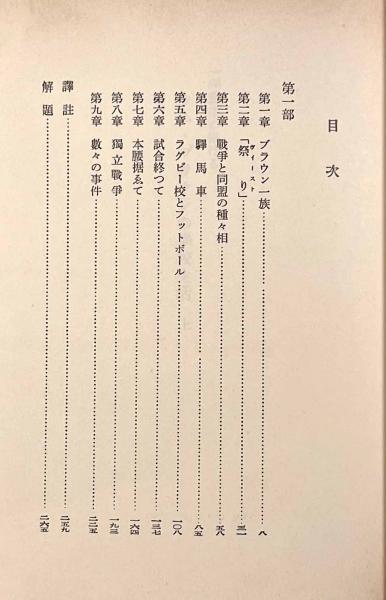 目次
第一部
第一章 ブラウン一族……八
第二章 「祭り」ヴィースト……三一
第三章 戰爭と同盟の種々相……五八
第四章 驛馬車……八五
第五章 ラグビー校とフットボール……一〇八
第六章 試合終つて……一三七
第七章 本腰据ゑて……一六四
第八章 獨立戰爭……一九三
第九章 數々の事件……二二五
譯註……二五九
解題……二六五